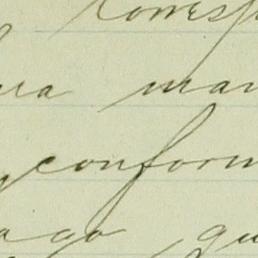 corresp
ua man
y conform
ago qu